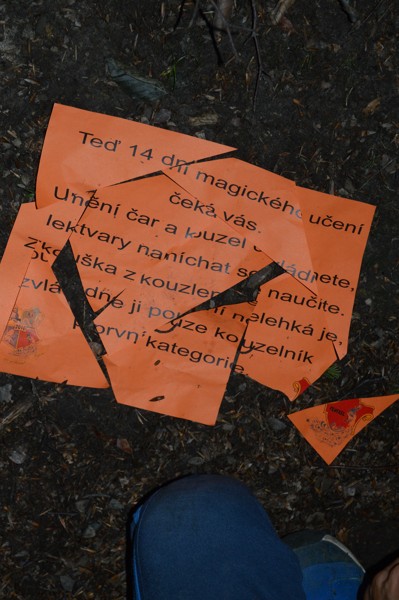 Teď 14 dní magického učení
čeká vás.
Umění čar a kouzel
lektvary namíchat se naučíte.
Zkouška z kouzlení nelehká je,
ji pouze kouzelník
první kategorie.